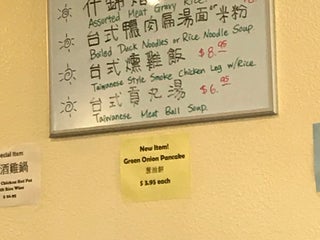 Assorted Meat Gravy Rice
台式臘肉扁湯面 or 米粉
Boiled Duck Noodles or Rice Noodle Soup
台式燻雞飯 $8.95
Taiwanese Style Smoke Chicken Leg w/Rice.
台式貢丸湯 $6.95
Taiwanese Meat Ball Soup.
Special Item
酒雞鍋
Chicken Hot Pot
New Item!
Green Onion Pancake
蔥油餅
$ 3.95 each